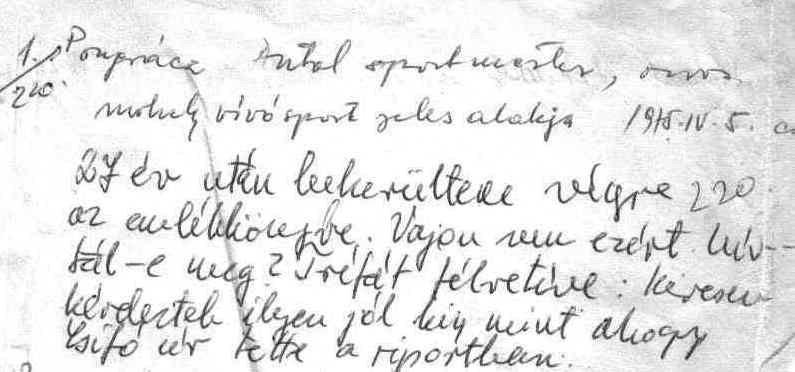 1. Pongrácz Antal sportmester, orvos
220.
mohely vívósport jeles alakja 1975.IV.5.
27 év után bekerültem végre 220.
az emlékkönyvbe. Vajon nem ezért hív-
tál-e meg? Tréfát félretéve: kevesen
kérdeztek ilyen jól ki, mint ahogy
Zsifó úr tette a riportban.